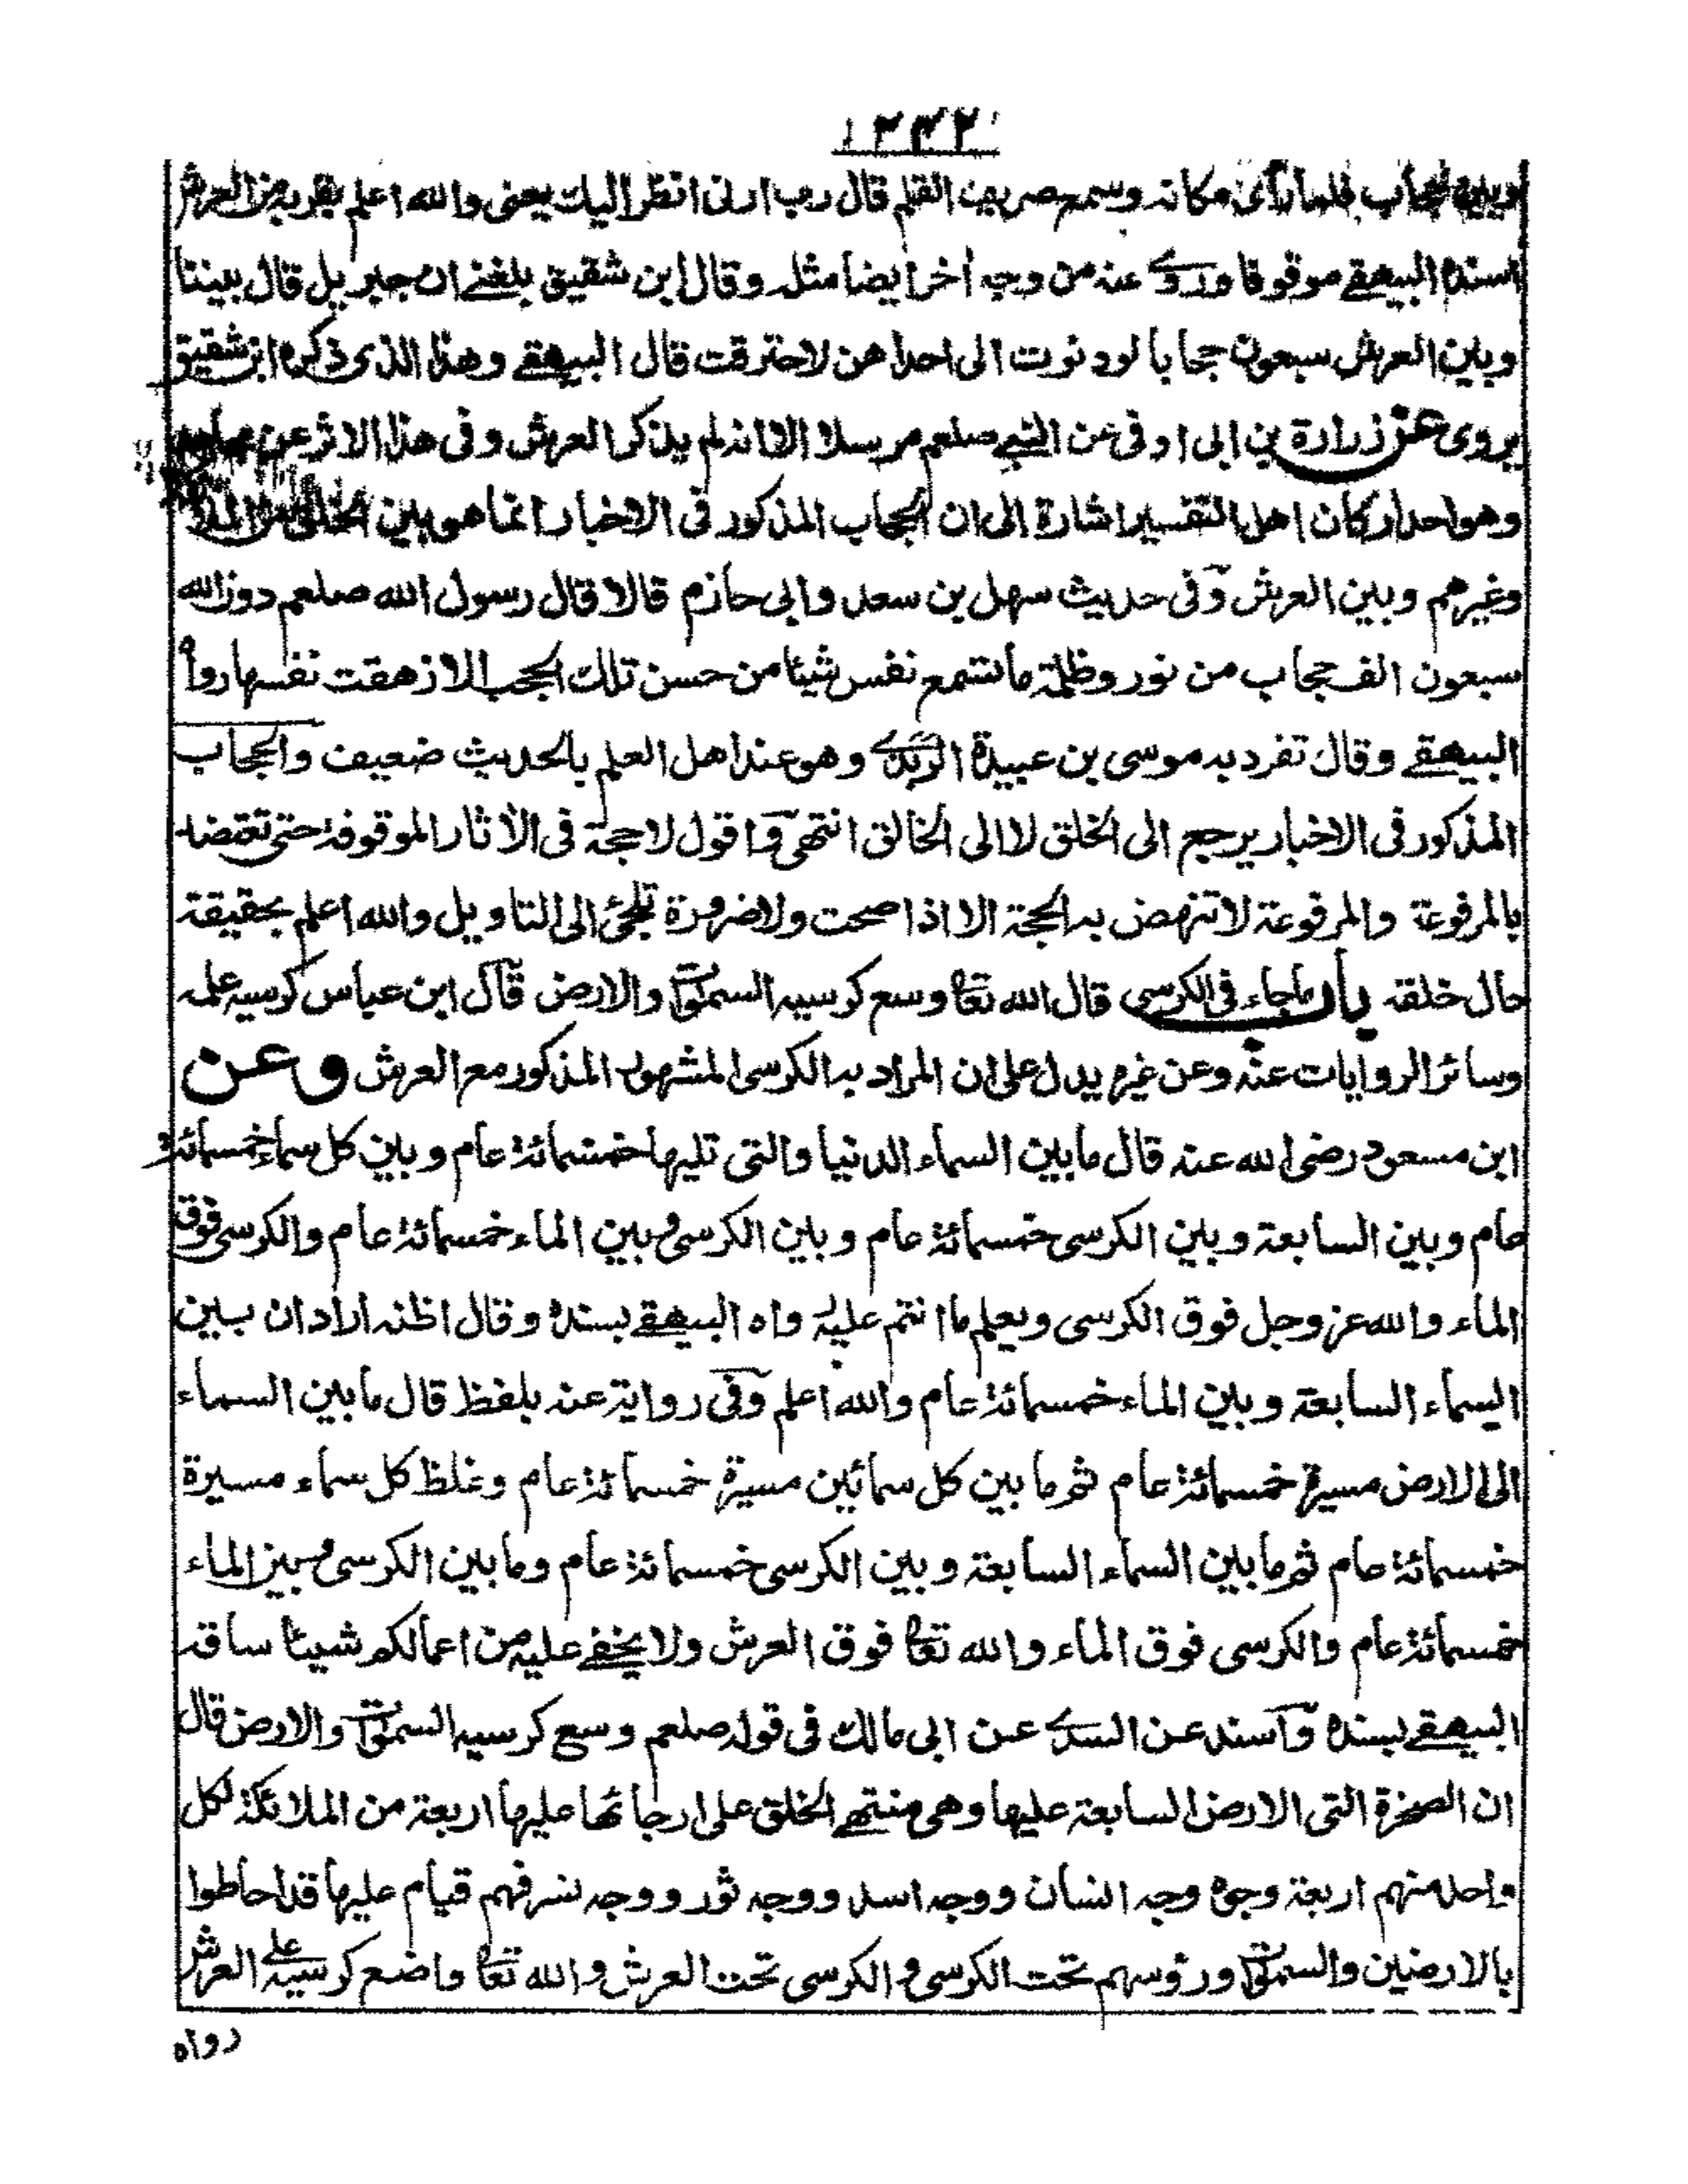 وبينه حجاب فلما رأى مكانه وسمع صريف القلم قال رب ارنى انظر اليك يعنى والله اعلم بقربه من العرش
اسنده البيهقے موقوفا وروے عنه من وجه أخر ايضا مثله وقال ابن شقيق بلغنے ان جبريل قال بيننا
وبين العرش سبعون حجابا لو دنوت الى احداهن لاحترقت قال البيهقے وهذا الذى ذكره ابن شقيق
يروى عن زرارة بن ابى اوفى عن النبے صلعم مرسلا الا انه لم يذكر العرش وفى هذا الاثر عن
وهو احد اركان اهل التفسير اشارة الى ان الحجاب المذكور فى الاخبار انما هو بين الخلق من
وغيرهم وبين العرش وفى حديث سهل بن سعد وابى حازم قالا قال رسول الله صلعم دون الله
سبعون الف حجاب من نور وظلمة ما تسمع نفس شيئا من حسن تلك الحجب الا زهقت نفسها رواه
البيهقے وقال تفرد به موسى بن عبيدة الربذے وهو عند اهل العلم بالحديث ضعيف والحجاب
المذكور فى الاخبار يرجع الى الخلق لا الى الخالق انتهى واقول لا حجة فى الأثار الموقوفة حتى تعتضد
بالمرفوعة والمرفوعة لا تنهض به الحجة الا اذا صحت ولا ضرورة تلجئ الى التاويل والله اعلم بحقيقة
حال خلقه باب ماجاء فى الكرسى قال الله تعا وسع كرسيه السموٰت والارض قال ابن عباس كرسيه علمه
وسائر الروايات عنه وعن غيره يدل على ان المراد به الكرسى المشهور المذكور مع العرش وعن
ابن مسعود رضى الله عنه قال ما بين السماء الدنيا والتى تليها خمسمائة عام وبين كل سماء خمسمائة
عام وبين السابعة وبين الكرسى خمسمائة عام وبين الكرسى وبين الماء خمسمائة عام والكرسى فوق
الماء والله عز وجل فوق الكرسى ويعلم ما انتم عليه رواه البيهقے بسنده وقال اظنه اراد ان بين
السماء السابعة وبين الماء خمسمائة عام والله اعلم وفى رواية عنه بلفظ قال ما بين السماء
الى الارض مسيرة خمسمائة عام ثم ما بين كل سمائين مسيرة خمسمائة عام وغلظ كل سماء مسيرة
خمسمائة عام ثم ما بين السماء السابعة وبين الكرسى خمسمائة عام وما بين الكرسى وبين الماء
خمسمائة عام والكرسى فوق الماء والله تعا فوق العرش ولا يخفے عليه من اعمالكم شيئا ساقه
البيهقے بسنده وأسند عن السدے عن ابى مالك فى قوله صلعم وسع كرسيه السموٰت والارض قال
ان الصخرة التى الارض السابعة عليها وهى منتهے الخلق على ارجائها عليها اربعة من الملائكة لكل
واحد منهم اربعة وجوه وجه انسان ووجه اسد ووجه ثور ووجه نسر فهم قيام عليها قد احاطوا
بالارضين والسموٰت ورؤسهم تحت الكرسى والكرسى تحت العرش والله تعا واضع كرسيه على العرش
رواه